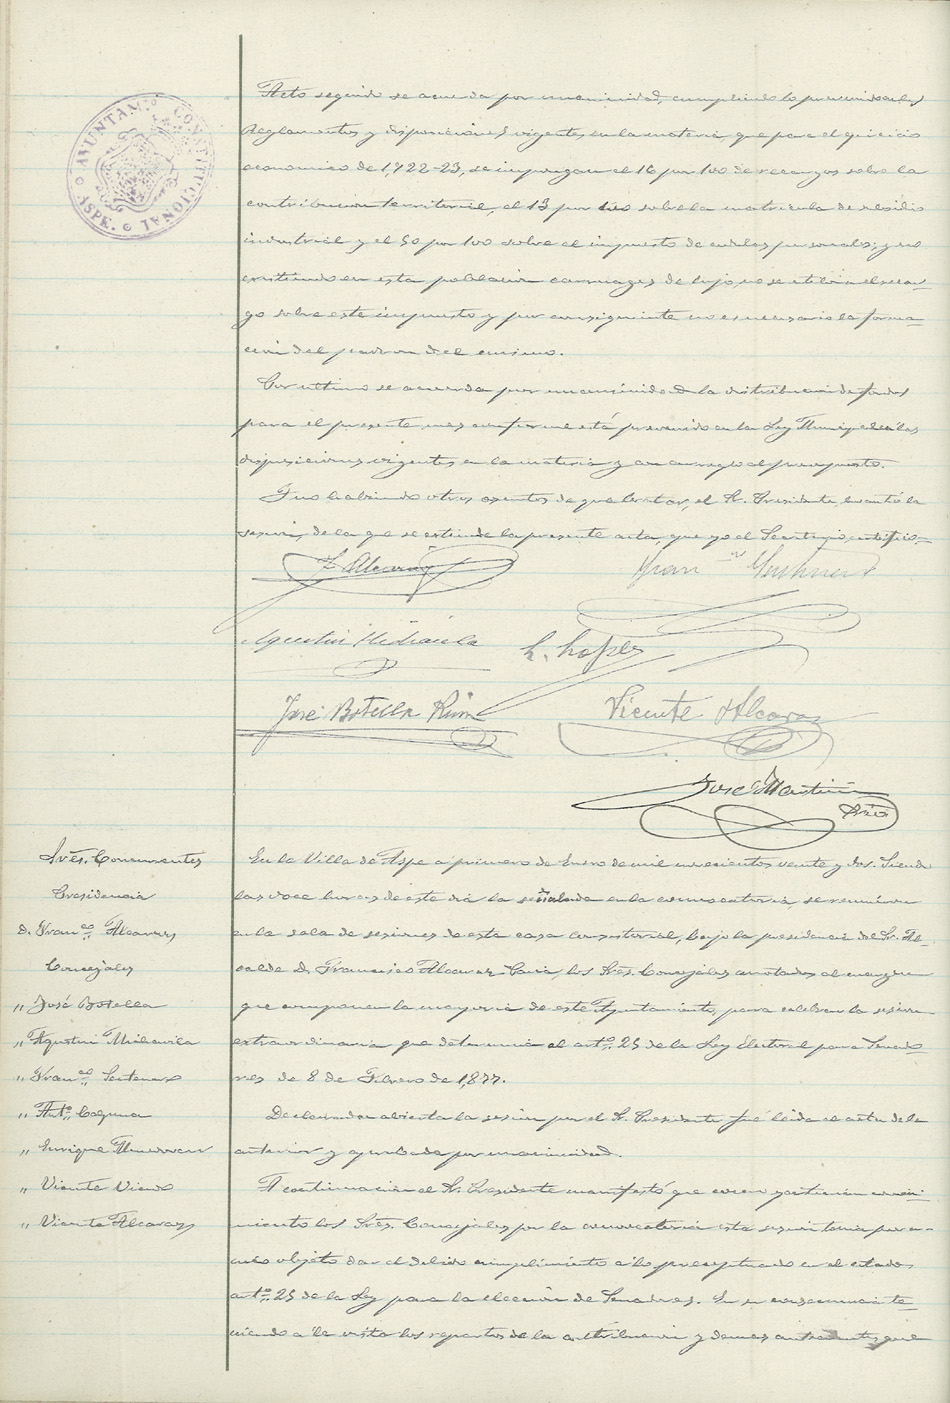 AYUNTAM. CONSTITUCIONAL ASPE.
Acto seguido se acuerda por unanimidad, cumpliendo lo prevenido en los
Reglamentos y disposiciones vigentes en la materia, que para el ejercicio
economico de 1,922-23, se impongan el 16 por 100 de recargos sobre la
contribucion territorial, el 13 por 100 sobre la matricula de subsidio
industrial y el 50 por 100 sobre el impuesto de cedulas personales; y no
existiendo en esta poblacion carruages de lujo, no se utiliza el recar-
go sobre este impuesto y por consiguiente no es necesario la forma-
cion del padron del mismo.
Por ultimo se acuerda por unanimidad la distribucion de fondos
para el presente mes conforme está prevenido en la Ley Municipal en las
disposiciones vigentes en la materia y con arreglo al presupuesto.
Y no habiendo otros asuntos de que tratar, el Sr. Presidente levantó la
sesion, de la que se extiende la presente acta, que yo el Secretario, certifico=
F. Alcaraz
Fran.co
Agustin Mirambla
López
José Botella
Vicente Alcaraz
José Martinez
Srio
Srés. Concurrentes
Presidencia
D. Franco. Alcaraz
Concejales
" José Botella
" Agustin
" Franco.
" Anto.
" Enrique Almodovar
" Vicente
" Vicente Alcaraz
En la Villa de Aspe a primero de Enero de mil novecientos veinte y dos. Siendo
las doce horas de este dia la señalada en la convocatoria, se reunieron
en la sala de sesiones de esta casa consistorial, bajo la presidencia del Sr. Al-
calde D. Francisco Alcaraz los Srés. Concejales anotados al margen
que componen la mayoria de este Ayuntamiento, para celebrar la sesion
extraordinaria que determina el arto. 25 de la Ley Electoral para Senado-
res de 8 de Febrero de 1,877.
Declarada abierta la sesion por el Sr. Presidente fué leida el acta de la
anterior y aprobada por unanimidad.
A continuacion el Sr. Presidente manifestó que como ya tienen conoci-
miento los Srés. Concejales por la convocatoria esta sesion tenia por u-
nico objeto dar el debido cumplimiento a lo preceptuado en el citado
arto. 25 de la Ley para la eleccion de Senadores. En su consecuencia te-
niendo a la vista los repartos de la contribucion y demas antecedentes que